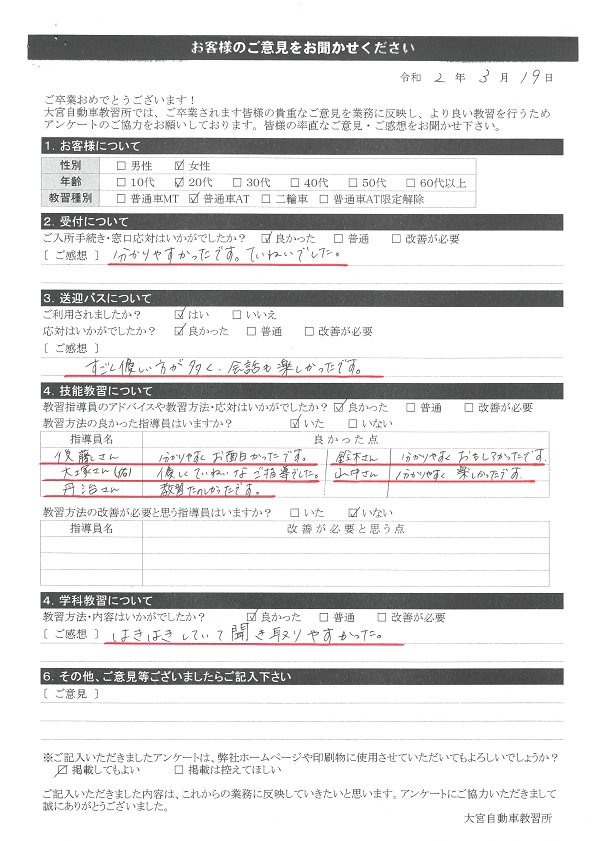 お客様のご意見をお聞かせください
令和 2 年 3 月 19 日
ご卒業おめでとうございます！
大宮自動車教習所では、ご卒業されます皆様の貴重なご意見を業務に反映し、より良い教習を行うため
アンケートのご協力をお願いしております。皆様の率直なご意見・ご感想をお聞かせ下さい。
1. お客様について
性別 □ 男性 ☑ 女性
年齢 □ 10代 ☑ 20代 □ 30代 □ 40代 □ 50代 □ 60代以上
教習種別 □ 普通車MT ☑ 普通車AT □ 二輪車 □ 普通車AT限定解除
2. 受付について
ご入所手続き・窓口応対はいかがでしたか？ ☑ 良かった □ 普通 □ 改善が必要
〔 ご感想 〕 分かりやすかったです。ていねいでした。
3. 送迎バスについて
ご利用されましたか？ ☑ はい □ いいえ
応対はいかがでしたか？ ☑ 良かった □ 普通 □ 改善が必要
〔 ご感想 〕
すごく優しい方が多く、会話も楽しかったです。
4. 技能教習について
教習指導員のアドバイスや教習方法・応対はいかがでしたか？ ☑ 良かった □ 普通 □ 改善が必要
教習方法の良かった指導員はいますか？ ☑ いた □ いない
指導員名 良かった点
後藤さん 分かりやすくお面白かったです。 鈴木さん 分かりやすくおもしろかったです。
大塚さん 優しくていねいなご指導でした。 山中さん 分かりやすく楽しかったです。
丹治さん 教習たのしかったです。
教習方法の改善が必要と思う指導員はいますか？ □ いた ☑ いない
指導員名 改善が必要と思う点
4. 学科教習について
教習方法・内容はいかがでしたか？ ☑ 良かった □ 普通 □ 改善が必要
〔 ご感想 〕 はきはきしていて聞き取りやすかった。
6. その他、ご意見等ございましたらご記入下さい
〔 ご意見 〕
※ご記入いただきましたアンケートは、弊社ホームページや印刷物に使用させていただいてもよろしいでしょうか？
☑ 掲載してもよい □ 掲載は控えてほしい
ご記入いただきました内容は、これからの業務に反映していきたいと思います。アンケートにご協力いただきまして
誠にありがとうございました。
大宮自動車教習所